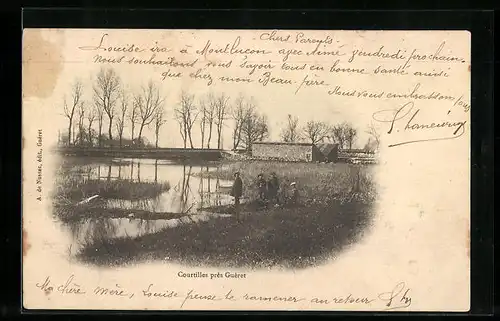 Chers Parents
Louise ira à Montluçon avec Aimé vendredi prochain.
Nous souhaitons vous savoir tous en bonne santé ainsi
que chez mon Beau-père
Nous vous embrassons
A. de Nussac, édit., Guéret
Courtilles près Guéret
Ma chère mère, Louise pense te ramener au retour